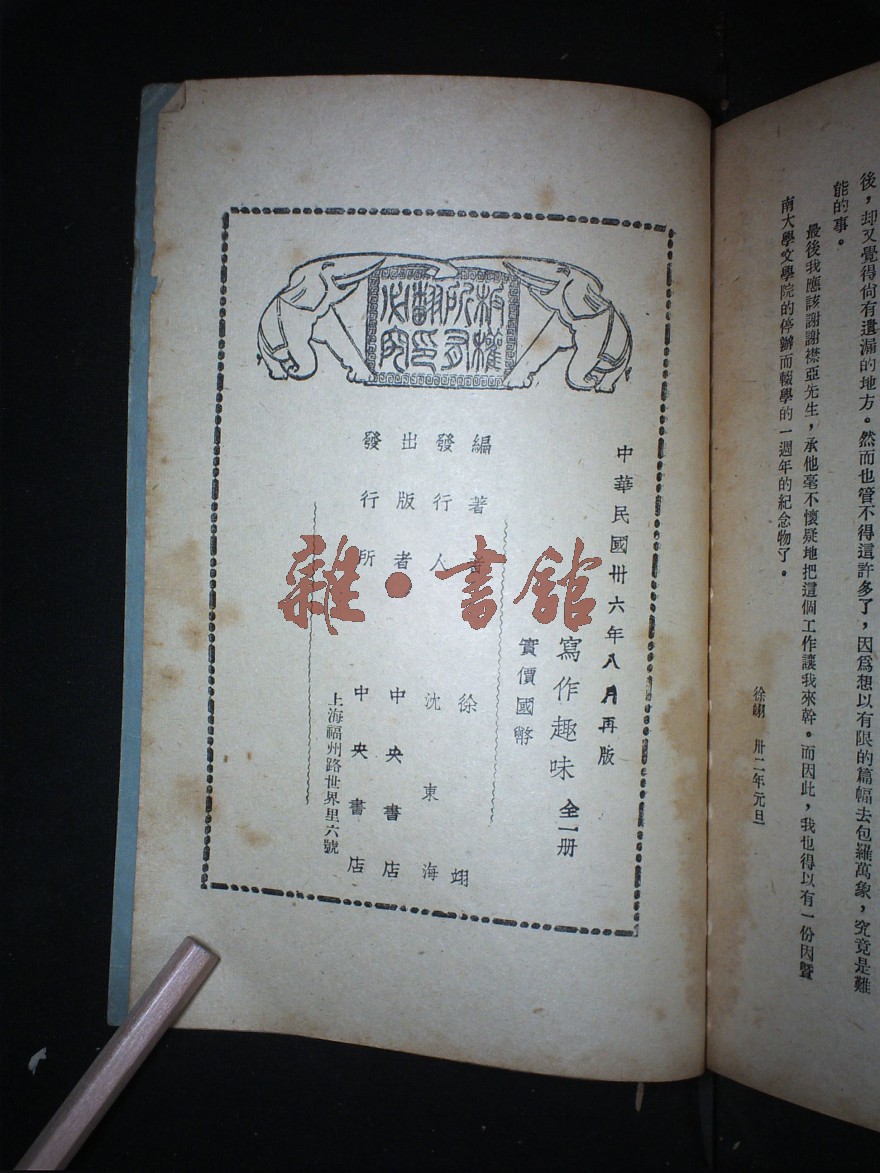 後，却又覺得尙有遺漏的地方。然而也管不得這許多了，因爲想以有限的篇幅去包羅萬象，究竟是難
能的事。
最後我應該謝謝襟亞先生，承他毫不懷疑地把這個工作讓我來幹。而因此，我也得以有一份因暨
南大學文學院的停辦而輟學的一週年的紀念物了。
徐翊 卅二年元旦
板權所有
翻印必究
中華民國卅六年八月再版
寫作趣味 全一册
實價國幣
編著者 徐翊
發行人 沈東海
出版者 中央書店
發行所 中央書店
上海福州路世界里六號
雜·書館